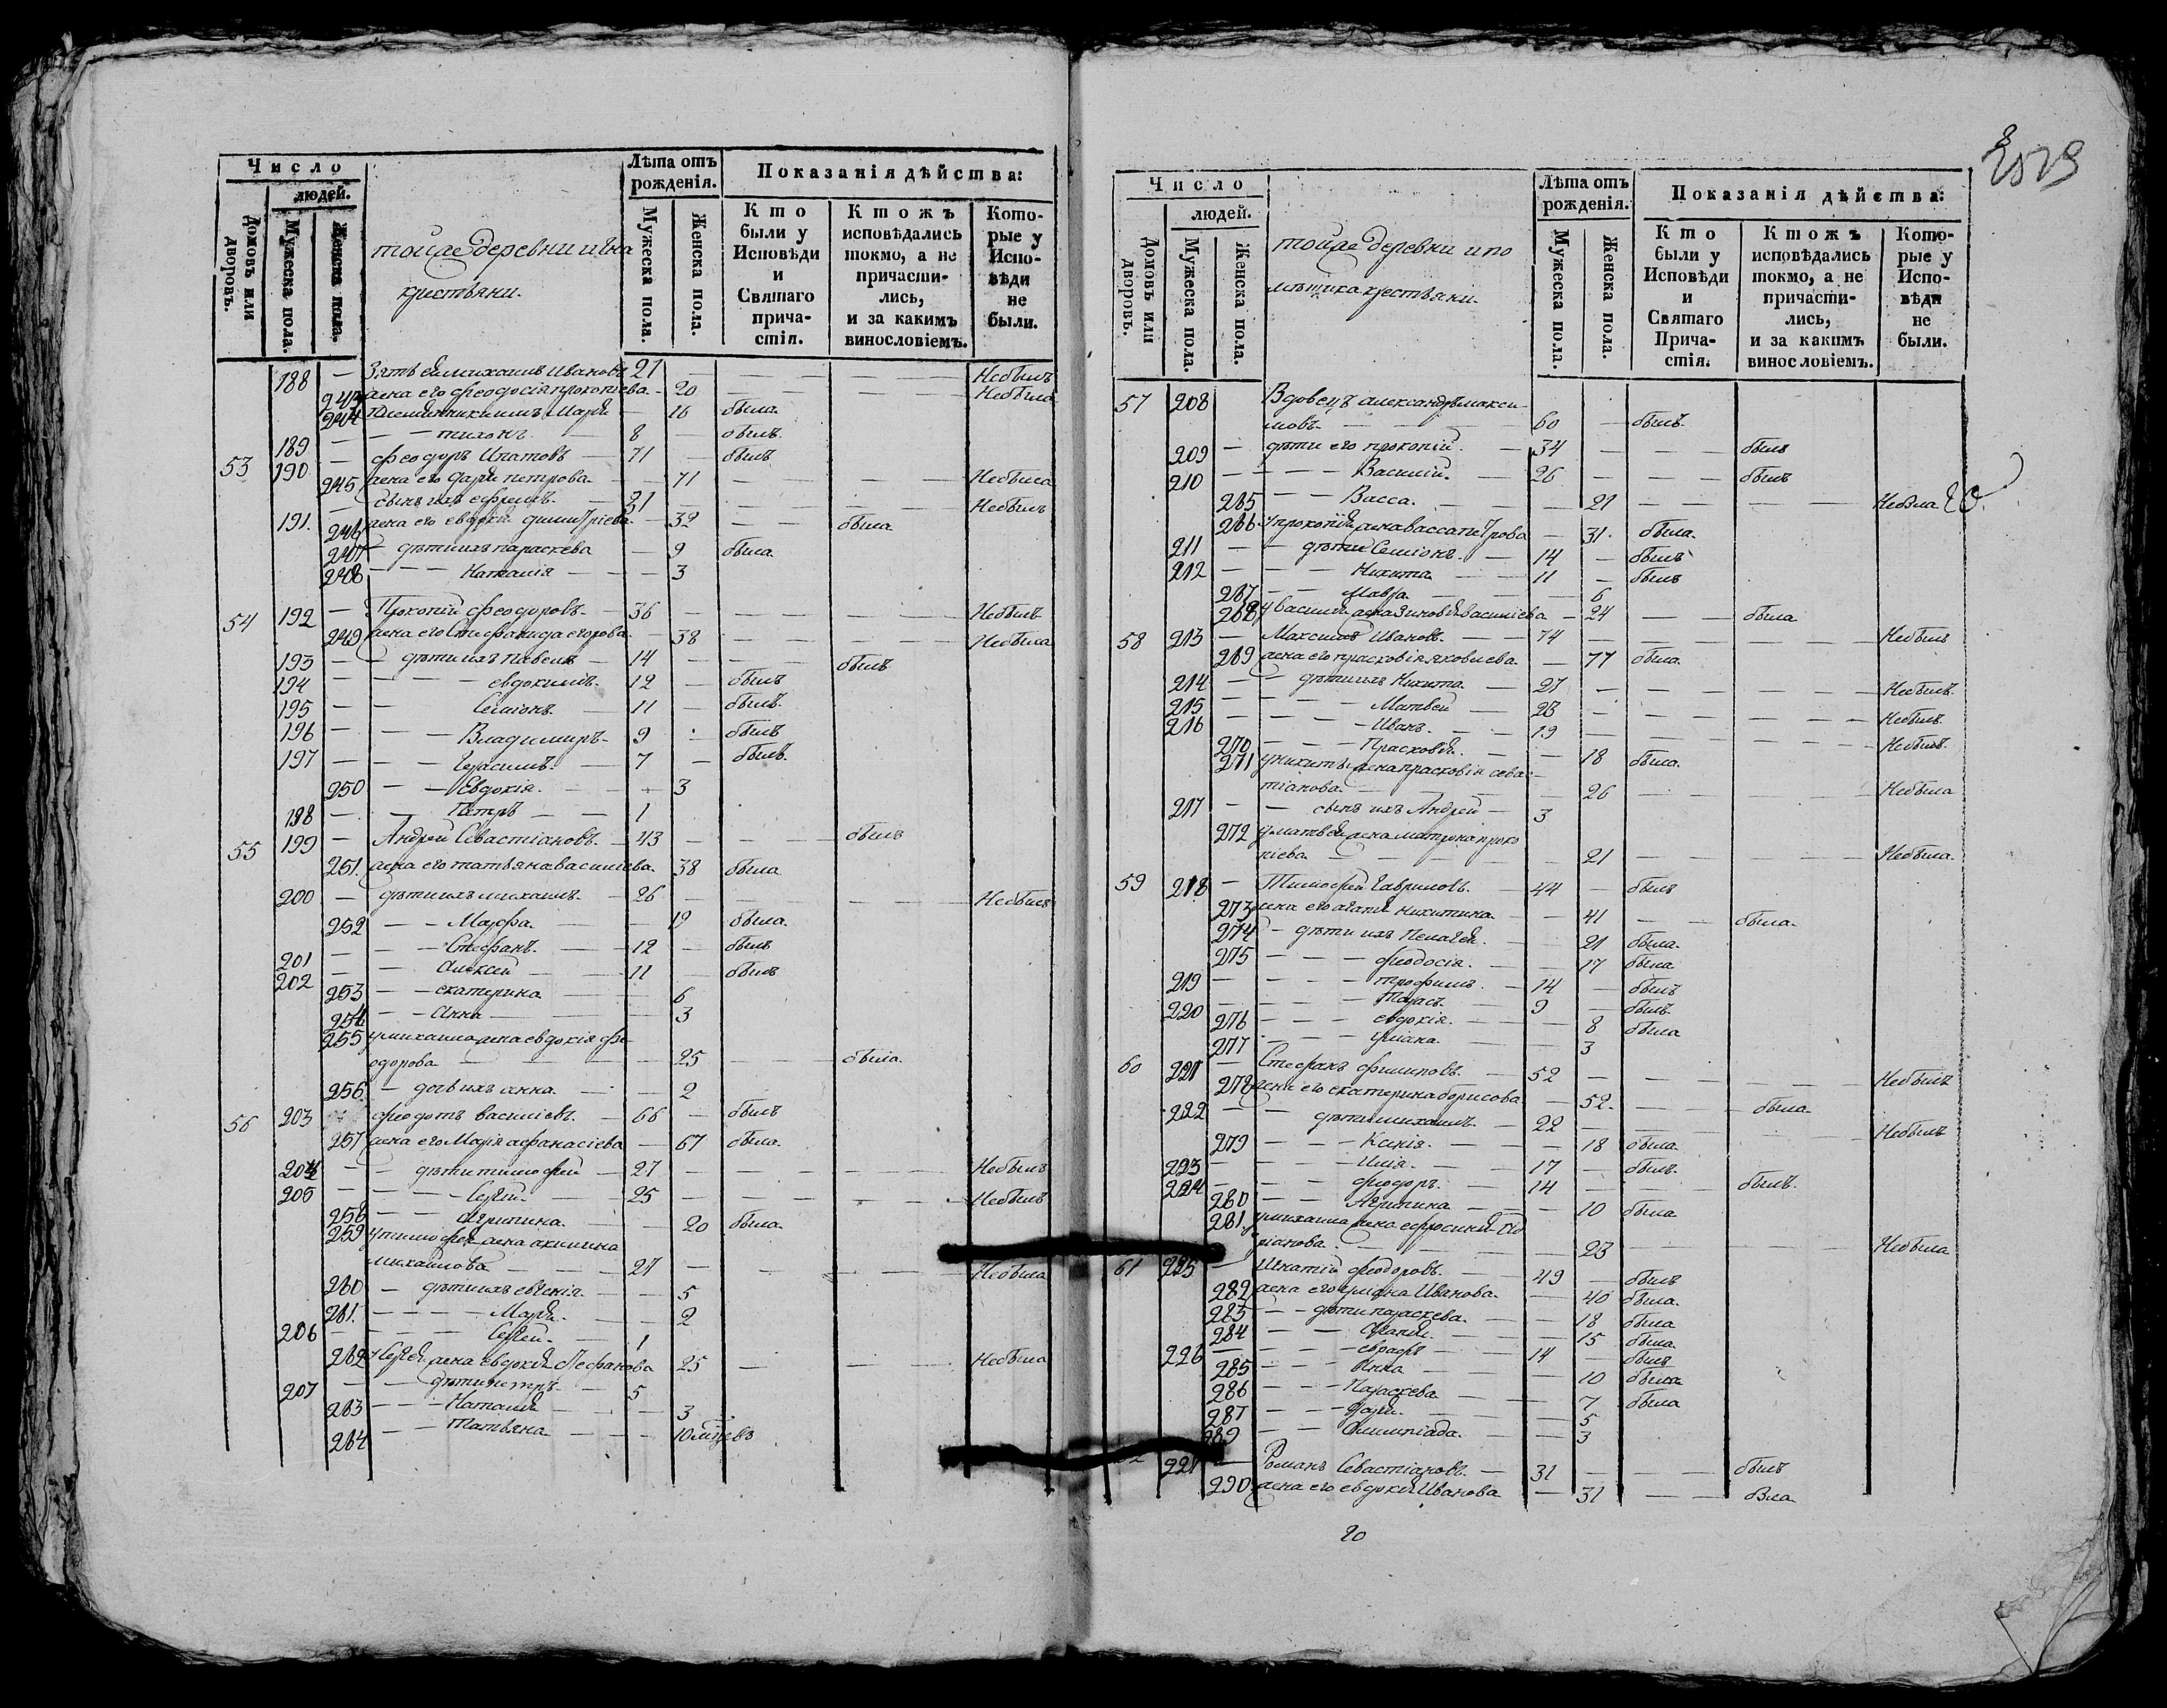 Число
людей.
Домовъ или дворовъ.
Мужеска пола.
Женска пола.
тойже деревни и
крестьяни.
Лѣта отъ рожденія.
Мужеска пола.
Женска пола.
Показанія дѣйства:
Кто были у Исповѣди и Святаго причастія.
Ктожъ исповѣдались токмо, а не причастились, и за какимъ винословіемъ.
Которые у Исповѣди не были.
188 — Зять ея михаилъ Ивановъ 21 — — — — Небылъ
243 жена его феодосія прокопіева — 20 — — — Небыла
244 — 16 была
189 — — — тихонъ — 8 — былъ
53 190 — феодоръ Ипатовъ — 71 — былъ
245 жена его Дарія петрова — 71 — — — Небыла
191 — сынъ ихъ ефремъ — 31 — — — Небылъ
246 жена его евдокія димитріева — 32 — — была
247 — дѣти ихъ параскева — 9 была
248 — — — Наталія — — 3
54 192 — Прокопій феодоровъ — 36 — — — Небылъ
249 жена его Стефанида егорова — 38 — — — Небыла
193 — — дѣти ихъ Павелъ — 14 — — былъ
194 — — — евдокимъ — 12 — былъ
195 — — Семіонъ — 11 — былъ
196 — — — Владимиръ — 9 — былъ
197 — — — Герасимъ — 7 — былъ
250 — — Евдокія — — 3
198 — — Петръ — — 1
55 199 — Андрей Севастіановъ — 43 — — былъ
251 жена его татьяна василіева — 38 была
200 — дѣти ихъ михаилъ — 26 — — — Небылъ
252 — — Марфа — — 19 была
201 — — Стефанъ — 12 — былъ
202 — — Алексей — 11 — былъ
253 — — екатерина — — 6
254 — — Анна — — 3
255 у михаила жена евдокія фе-
одорова — — 25 — — была
256 — дочь ихъ анна — — 2
56 203 феодотъ василіевъ — 66 — былъ
257 жена его Марія афанасіева — 67 была
204 — — дѣти тимофей — 27 — — — Небылъ
205 — — — Сергей — 25 — — — Небылъ
258 — — Агрипина — — 20 была
259 у тимофея жена акилина
михаилова — — 27 — — — Небыла
260 — дѣти ихъ евгенія — — 5
261 — — — Марія — — 2
206 — — — Сергей — 1
262 у Сергея жена евдокія Стефанова 25 — — Небыла
207 — — дѣти петръ — 5
263 — — — Наталія — — 3
264 — — Татьяна — — 10 мцевъ
Число
людей.
Домовъ или дворовъ.
Мужеска пола.
Женска пола.
тойже деревни и по
мѣщика крестьяни
Лѣта отъ рожденія.
Мужеска пола.
Женска пола.
Показанія дѣйства:
Кто были у Исповѣди и Святаго Причастія.
Ктожъ исповѣдались токмо, а не причастились, и за какимъ винословіемъ.
Которые у Исповѣди не были.
57 208 Вдовецъ александръ макси-
мовъ — — 60 — былъ
209 — дѣти его прокопій — 34 — — былъ
210 — — — Василій — 26 — — былъ
265 — — Васса — — 21 — — — Небыла
266 у прокопія жена васса петрова — 31 была
211 — — дѣти Семіонъ — 14 — былъ
212 — — — Никита — 11 — былъ
267 — — Мавра — — 6
268 у василія жена Зиновія василіева — 24 — — была
58 213 — Максимъ Ивановъ — 74 — — — Небылъ
269 жена его прасковія яковлева — 77 была
214 — — дѣти ихъ Никита — 27 — — — Небылъ
215 — — — Матвей — 23 — — — Небылъ
216 — — — Иванъ — 19 — — — Небылъ
270 — — — Прасковія — — 18 была
271 у никиты жена прасковія сева-
тіанова — — 26 — — — Небыла
217 — — сынъ ихъ Андрей — 3
272 у матвея жена матрона проко
піева — — 21 — — — Небыла
59 218 — Тимофей Гавриловъ — 44 — былъ
273 жена его агапія Никитина — 41 — — была
274 — дѣти ихъ Пелагея — — 21 была
275 — — — феодосія — — 17 была
219 — — — трофимъ — 14 — былъ
220 — — — Тарасъ — 9 — былъ
276 — — — евдокія — — 8 была
277 — — — уліана — — 3
60 221 — Стефанъ филиповъ — 52 — — — Небылъ
278 жена его екатерина борисова — 52 — — была
222 — — дѣти михаилъ — 22 — — — Небылъ
279 — — — Ксенія — — 18 была
223 — — — Илія — 17 — былъ
224 — — — феодоръ — 14 — — былъ
280 — — Агрипина — — 10 была
281 у михаила жена ефросинія
ріанова — — 23 — — — Небыла
61 225 — Игнатій феодоровъ — 49 — былъ
282 жена его уліана Иванова — 40 была
283 — — дѣти параскева — — 18 была
284 — — — — 15 была
226 — — — 14 — былъ
285 — — — Анна — — 10 была
286 — — — Параскева — — 7 была
287 — — — Дарія — — 5
289 — — Олимпіада — — 3
227 — Романъ Севастіановъ — 31 — — былъ
290 жена его евдокія Иванова — 31 — — была
20